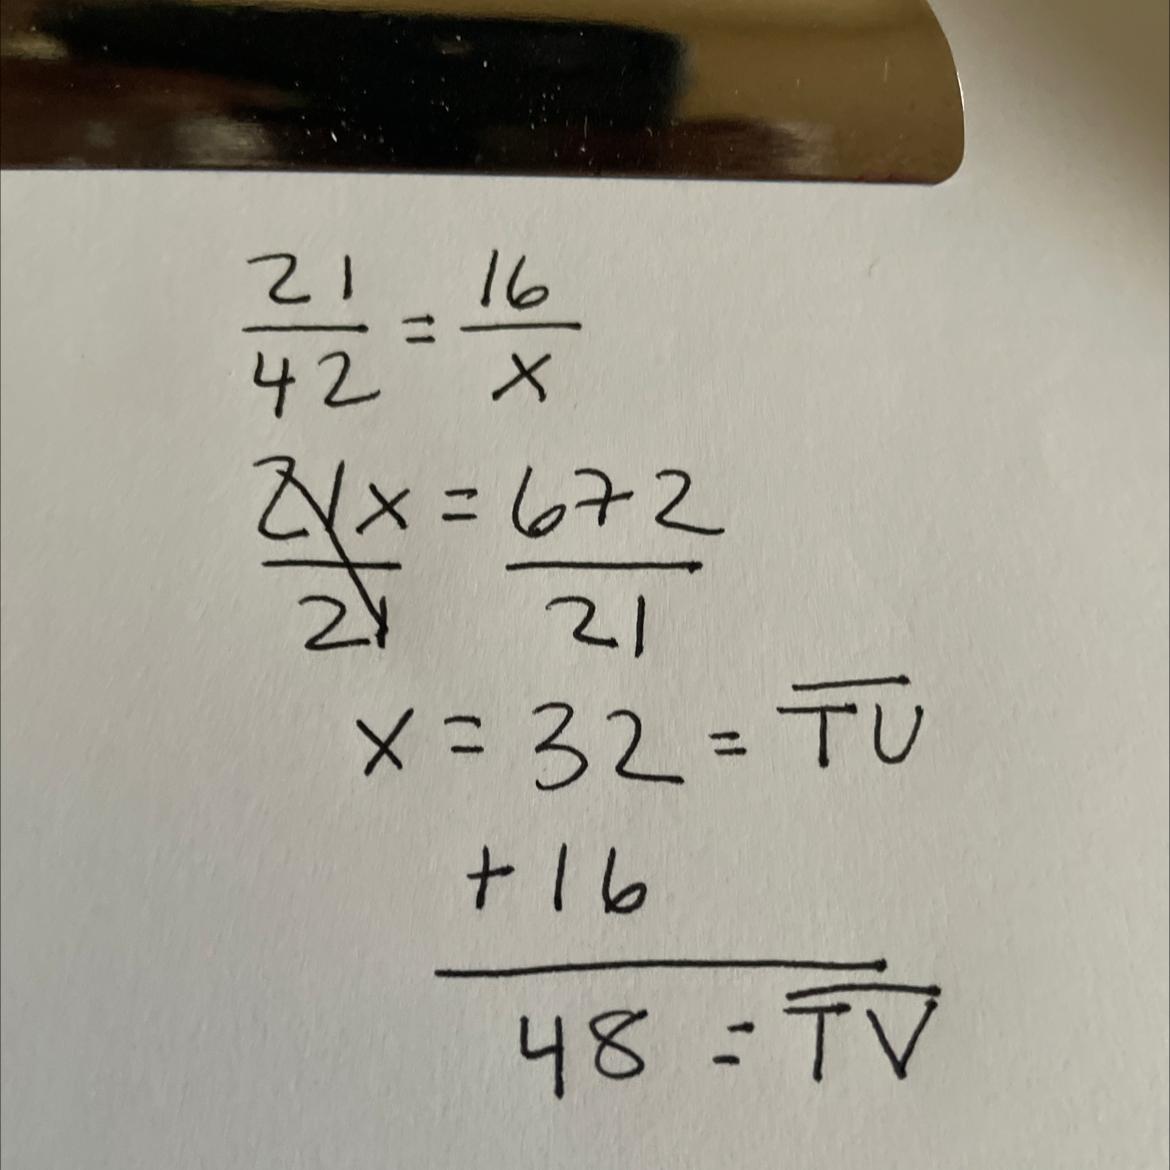 21/42 = 16/x
21x/21 = 672/21
x = 32 = T̅U̅
+16
48 = T̅V̅